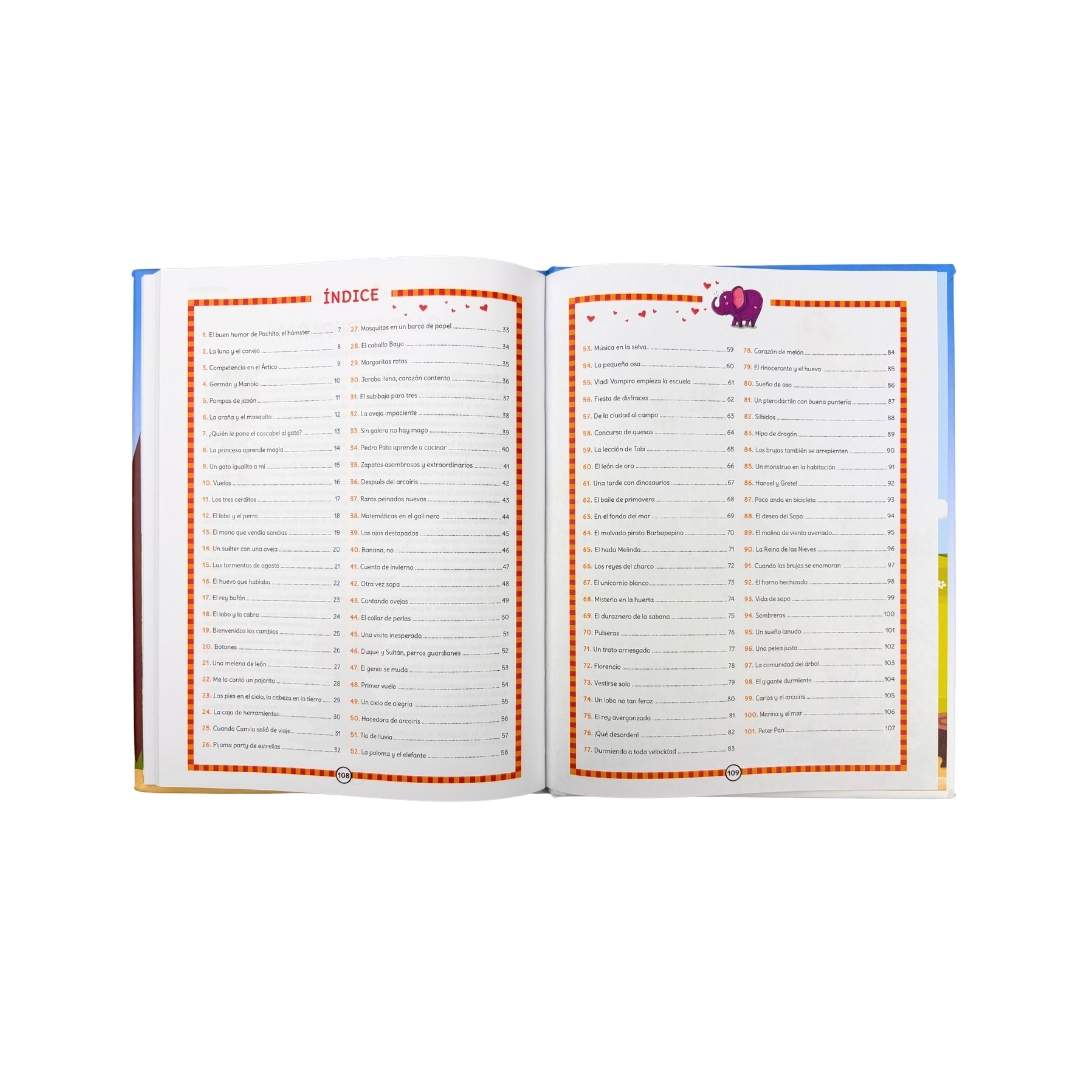 ÍNDICE
1. El buen humor de Pachito, el hámster 7
2. La luna y el conejo 8
3. Competencia en el Ártico 9
4. Germán y Manola 10
5. Pompas de jabón 11
6. La araña y el mosquito 12
7. ¿Quién le pone el cascabel al gato? 13
8. La princesa aprende magia 14
9. Un gato igualito a mí 15
10. Vuelos 16
11. Los tres cerditos 17
12. El lobo y el perro 18
13. El mono que vendía sandías 19
14. Un suéter con una oveja 20
15. Las tormentas de agosto 21
16. El huevo que hablaba 22
17. El rey bufón 23
18. El lobo y la cabra 24
19. Bienvenidos los cambios 25
20. Botones 26
21. Una melena de león 27
22. Me lo contó un pajarito 28
23. Los pies en el cielo, la cabeza en la tierra 29
24. La caja de herramientas 30
25. Cuando Camila salió de viaje 31
26. Pijama party de estrellas 32
27. Mosquitos en un barco de papel 33
28. El caballo Bayo 34
29. Margaritas rotas 35
30. Joroba llena, corazón contento 36
31. El subibaja para tres 37
32. La oveja impaciente 38
33. Sin galera no hay mago 39
34. Pedro Pato aprende a cocinar 40
35. Zapatos asombrosos y extraordinarios 41
36. Después del arcoíris 42
37. Raros peinados nuevos 43
38. Matemáticas en el gallinero 44
39. Los ojos destapados 45
40. Banana, no 46
41. Cuento de invierno 47
42. Otra vez sopa 48
43. Contando ovejas 49
44. El collar de perlas 50
45. Una visita inesperada 51
46. Duque y Sultán, perros guardianes 52
47. El genio se muda 53
48. Primer vuelo 54
49. Un cielo de alegría 55
50. Hacedora de arcoíris 56
51. Tía de lluvia 57
52. La paloma y el elefante 58
108
53. Música en la selva 59
54. La pequeña osa 60
55. Vladi Vampiro empieza la escuela 61
56. Fiesta de disfraces 62
57. De la ciudad al campo 63
58. Concurso de quesos 64
59. La lección de Tobi 65
60. El león de oro 66
61. Una tarde con dinosaurios 67
62. El baile de primavera 68
63. En el fondo del mar 69
64. El malvado pirata Barbapepino 70
65. El hada Melinda 71
66. Los reyes del charco 72
67. El unicornio blanco 73
68. Misterio en la huerta 74
69. El duraznero de la sabana 75
70. Pulseras 76
71. Un trato arriesgado 77
72. Florencio 78
73. Vestirse solo 79
74. Un lobo no tan feroz 80
75. El rey avergonzado 81
76. ¡Qué desorden! 82
77. Durmiendo a toda velocidad 83
78. Corazón de melón 84
79. El rinoceronte y el huevo 85
80. Sueño de oso 86
81. Un pterodáctilo con buena puntería 87
82. Silbidos 88
83. Hipo de dragón 89
84. Las brujas también se arrepienten 90
85. Un monstruo en la habitación 91
86. Hansel y Gretel 92
87. Paco anda en bicicleta 93
88. El deseo del Sapo 94
89. El molino de viento averiado 95
90. La Reina de las Nieves 96
91. Cuando las brujas se enamoran 97
92. El horno hechizado 98
93. Vida de sapo 99
94. Sombreros 100
95. Un sueño lanudo 101
96. Una pelea justa 102
97. La comunidad del árbol 103
98. El gigante durmiente 104
99. Carlos y el arcoíris 105
100. Marina y el mar 106
101. Peter Pan 107
109